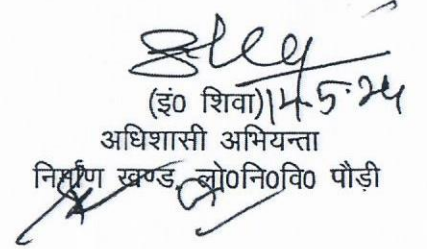 (इं0 शिवा) 14-5-24
अधिशासी अभियन्ता
निर्माण खण्ड, लो0नि0वि0 पौड़ी